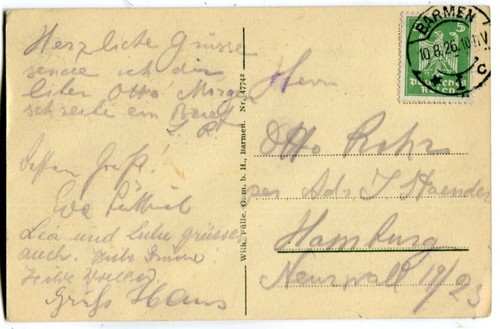 Herzliche Grüsse
sende ich dir
liber Otto Morgen
schreibe ein Brief
Besten Gruß!
Eva
Lia und Lulu grüssen
auch.
Gruß Hans
Wilh. Fülle, G.m.b.H., Barmen. Nr. 47742
BARMEN
10.8.26.10-11V
* 1 c
5
Deutsches
Reich
Herrn
Otto Rohr
per Adr. J Haender
Hamburg
Neuerwall 19/23